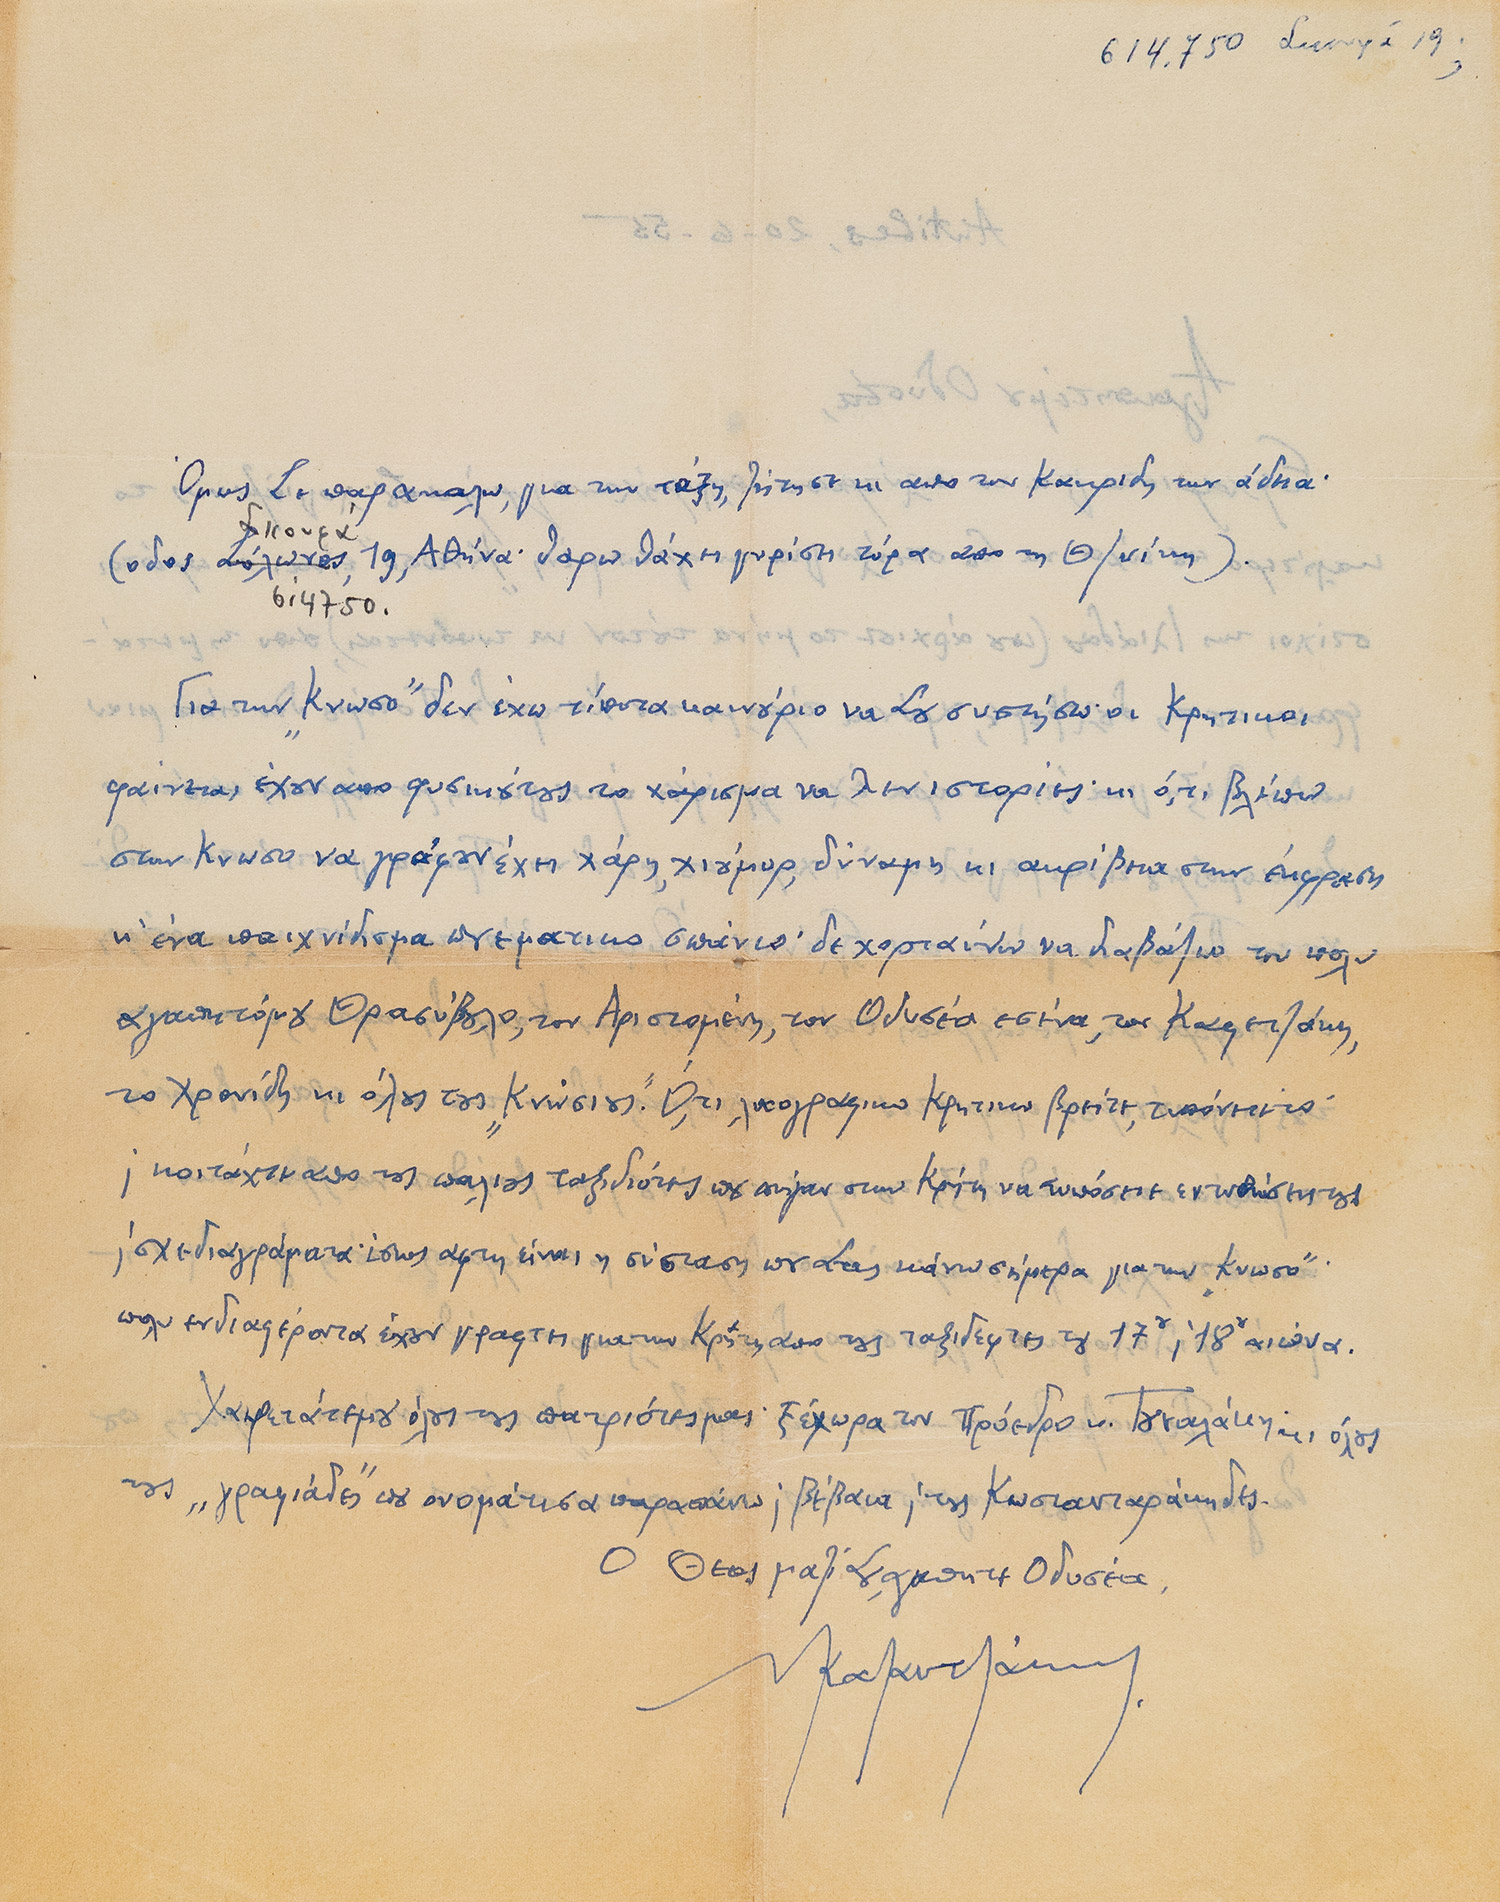 614.750 Σκουφά 19;
Όμως Σε παρακαλώ, για την τάξη, ζήτησε κι απο τον Κακριδη την άδεια·
Σκουφά
(οδος Σόλωνος, 19, Αθήνα· θαρω θάχει γυρίσει τώρα απο τη Θ/νίκη).
614750.
Για την „Κνωσο" δεν έχω τίποτα καινούριο να Σου συστήσω· οι Κρητικοι
φαίνεται έχουν απο φυσικού τους το χάρισμα να λεν ιστορίες· κι ό,τι βλέπω
στην Κνωσο να γράφουν έχει χάρη, χιούμορ, δύναμη κι ακρίβεια στην έκφραση
κ' ένα παιχνίδισμα πνεματικο σπάνιο· δε χορταίνω να διαβάζω τον πολυ
αγαπητό μου Θρασύβουλο, τον Αριστομένη, τον Οδυσέα εσένα, τον Καφετζάκη,
το Χρονίδη κι όλους τους „Κνώσιους". Ό,τι λαογραφικο Κρητικο βρείτε, τυπώνετέ το·
ή κοιτάχτε απο τους παλιους ταξιδιώτες που πήγαν στην Κρήτη να τυπώσετε εντυπώσεις τους
ή σχεδιαγράματα· ίσως αφτη είναι η σύσταση που Σας κάνω σήμερα για την „Κνωσο"·
πολυ ενδιαφέροντα έχουν γραφτει για την Κρήτη απο τους ταξιδεφτες του 17ου ή 18ου αιώνα.
Χαιρετάτε μου όλους τους πατριώτες μας· ξέχωρα τον Πρόεδρο κ. Γουναλάκη κι όλους
τους „γραφιάδες" που ονομάτισα παραπάνω ή βέβαια ή τους Κωστανταράκηδες.
Ο Θεος μαζί Σου, αγαπητε Οδυσέα,
Ν Καζαντζάκης.